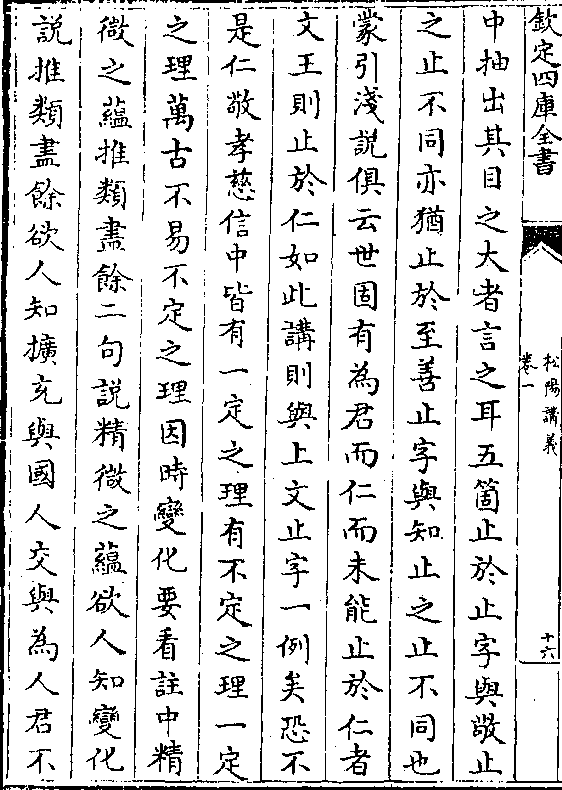 欽定四庫全書
松陽講義
卷一
十六
中抽出其目之大者言之耳五箇止於止字與敬止
之止不同亦猶止於至善止字與知止之止不同也
蒙引淺說俱云世固有為君而仁而未能止於仁者
文王則止於仁如此講則與上文止字一例矣恐不
是仁敬孝慈信中皆有一定之理有不定之理一定
之理萬古不易不定之理因時變化要看註中精
微之蘊推類盡餘二句說精微之蘊欲人知變化
說推類盡餘欲人知擴充與國人交與為人君不